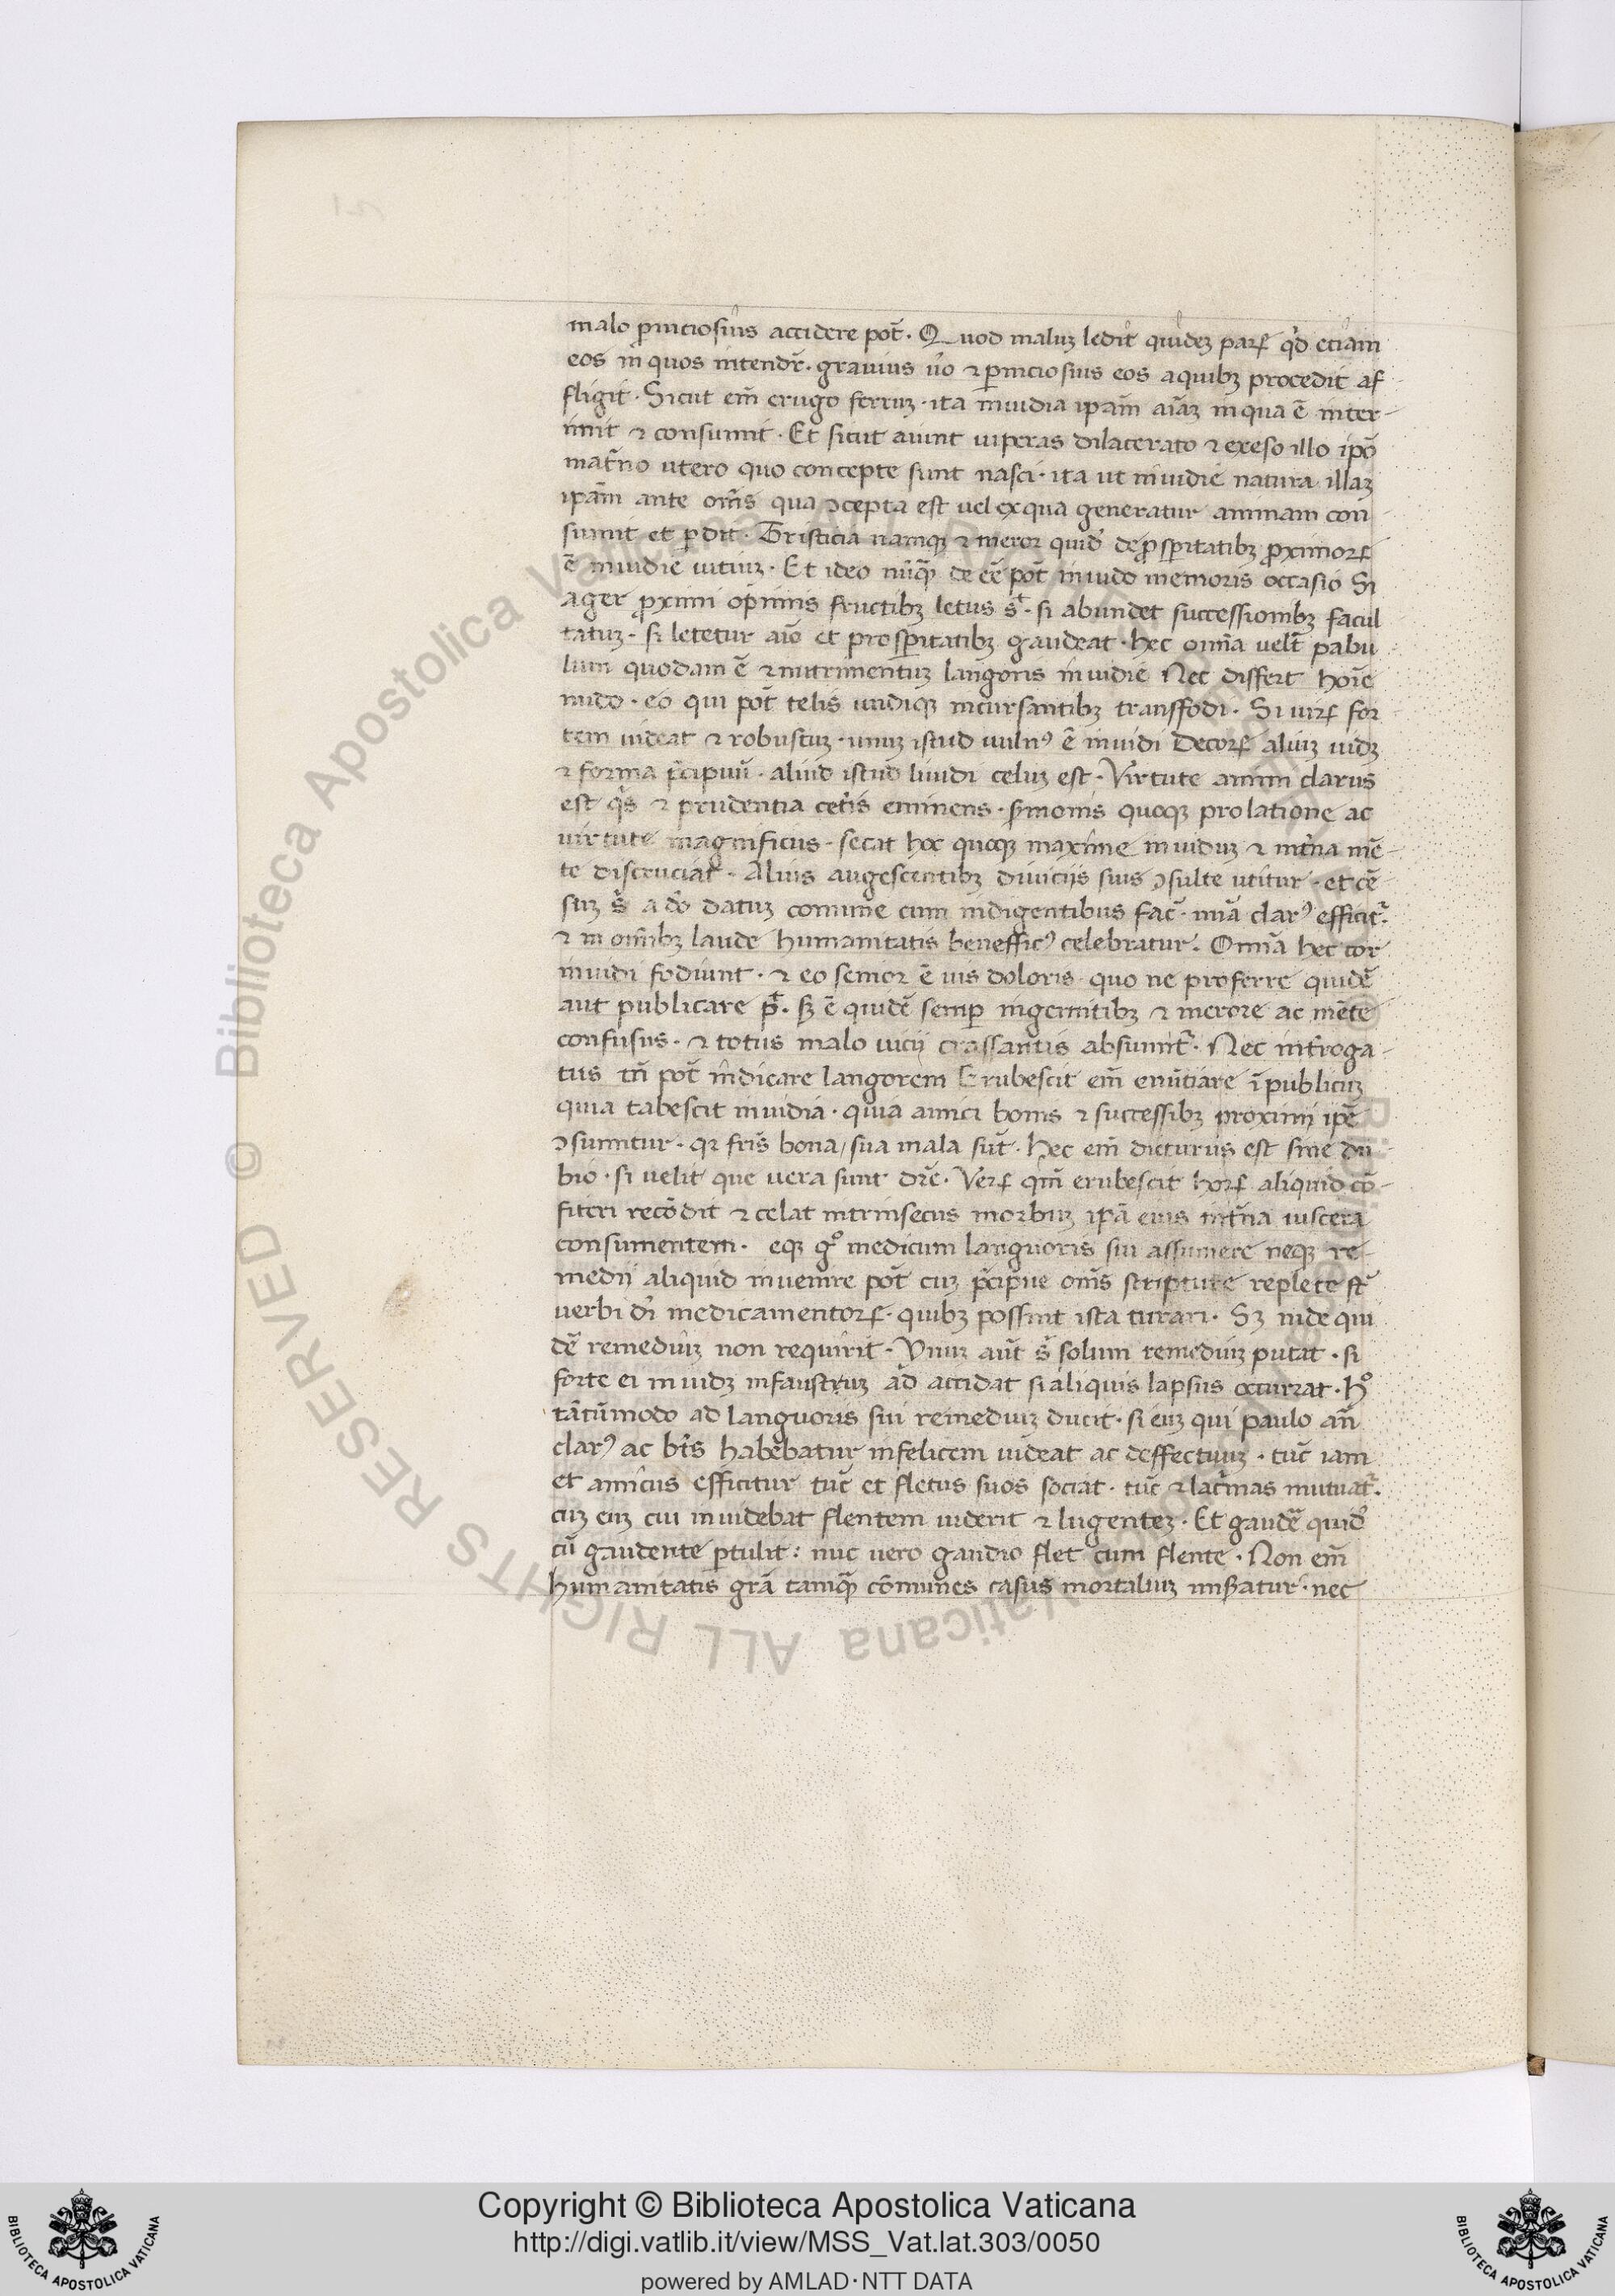 malo ꝑniciosius accidere pot̄. Quod maluꝫ ledit quideꝫ paꝝ qͥd etiam
eos in quos intendr̄. gravius v̄o ⁊ ꝑniciosius eos a quibꝫ procedit af
fligit. Sicut em̄ erugo ferruꝫ. ita invidia ipam̄ aīaꝫ in qua ē inter-
imit ⁊ consumit. Et sicut aiunt viperas dilacerato ⁊ exeso illo ip̄o
mat̄no utero quo concepte sunt nasci. ita ut invidie natura illaꝫ
ipam̄ ante om̄s qua ꝯcepta est vel ex qua generatur animam con
sumit et ꝑdit. Tristicia namqꝫ ⁊ meror quid̄ de ꝓsꝑitatibꝫ ꝓximoꝝ
ē invidie vitiuꝫ. Et ideo nūqꝫ̄ de eē̄ pot̄ invido memoris occasio Si
ager ꝓximi opimis fructibꝫ letus s̄t. si abundet successionibꝫ facul
tatuꝫ. si letetur aīo et prosꝑitatibꝫ gaudeat. hec om̄a velt̄ pabu
lum quodam ē ⁊ nutrimentuꝫ langoris invidie Nec differt hoīe
nudo. eo qui pot̄ telis undiqꝫ incursantibꝫ transfodi. Si viꝝ for
tem videat ⁊ robustuꝫ. unuꝫ istud vulnꝰ ē invidi Decoꝝ aliuꝫ vidꝫ
⁊ forma p̄cipuū. aliud istud lividi celuꝫ est. Virtute animi clarus
est q̄s ⁊ prudentia cet̄is eminens. s̄monis quoqꝫ prolatione ac
virtute magnificus. secat hoc quoqꝫ maxime inviduꝫ ⁊ int̄na mē-
te discruciat̄. Alius augescentibꝫ diviciis suis ꝯsulte utitur. et cē
suꝫ s̄ a do̅ datuꝫ comune cum indigentibus fac̄. mīa clarꝰ efficit̄.
⁊ in om̄ibꝫ laude humanitatis benefficꝰ celebratur. Omīa hec cor
invidi fodiunt. ⁊ eo senior ē vis doloris quo ne proferre quidē
aut publicare p̄t. sꝫ ē quidē semꝑ ingemitibꝫ ⁊ merore ac mēte
confusus. ⁊ totus malo vicii crassantis absumit̄. Nec int̄roga-
tus tn̄ pot̄ indicare langorem Erubescit em̄ enūtiare ī publicuꝫ
quia tabescit invidia. quia amici bonis ⁊ successibꝫ proximi ipē
ꝯsumitur. qꝛ fris̄ bona, sua mala sūt. Hec em̄ dicturus est sine du
bio. si velit que vera sunt dr̄e. Veꝝ qm̄ erubescit hoꝝ aliquid cō-
fiteri recōdit ⁊ celat intrinsecus morbuꝫ ipā eius int̄na viscera
consumentem. eqꝫ gͦ medicum languoris sui assumere neqꝫ re-
medii aliquid invenire pot̄ cuꝫ p̄cipue om̄s scripture replete st̄
verbi dī medicamentoꝝ. quibꝫ possint ista curari. Sꝫ inde qui
dē remediuꝫ non requirit. Unuꝫ aut̄ s̄ solum remediuꝫ putat. si
forte ei invidꝫ infaustuꝫ ad accidat si aliquis lapsus occurrat. Hͦ
tātūmodo ad languoris sui remediuꝫ ducit. si euꝫ qui paulo an̄
clarꝰ ac bt̄s habebatur infelicem videat ac deffectuuꝫ. tūc iam
et amicus efficitur tūc et fletus suos sociat. tūc ⁊ lac̄mas mutuat̄.
cuꝫ euꝫ cui invidebat flentem viderit ⁊ lugenteꝫ. Et gaudē quid̄
cū gaudente ꝑtulit: nūc vero gaudio flet cum flente. Non em̄
humanitatis grā tamqꝫ̄ cōmunes casus mortaliuꝫ misatur. nec
Copyright © Biblioteca Apostolica Vaticana
http://digi.vatlib.it/view/MSS_Vat.lat.303/0050
powered by AMLAD·NTT DATA